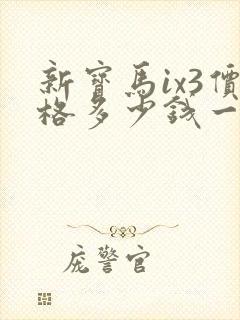 新寶馬ix3價
格多少錢一
庞警官